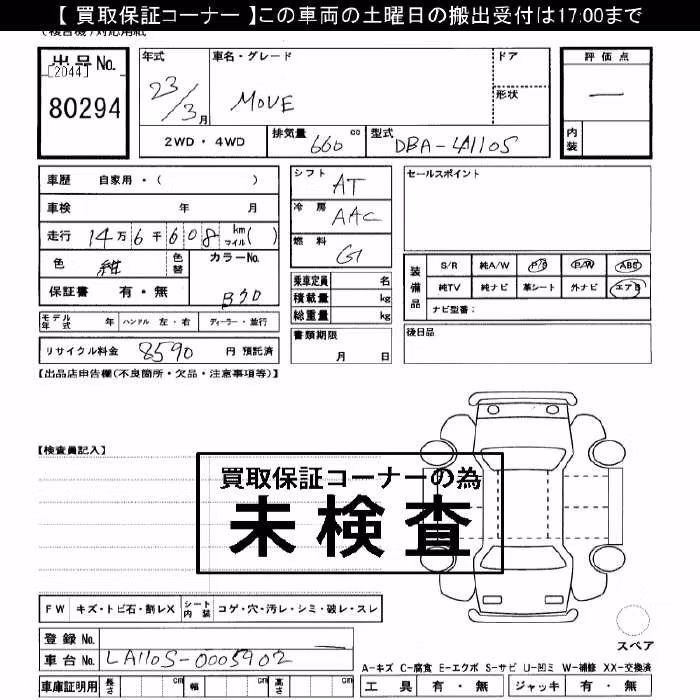 【買取保証コーナー】この車両の土曜日の搬出受付は17:00まで
(複合機)対応用紙
出品No. [2044] 80294
年式 23/3月
車名・グレード MOVE
ドア
形状
評価点 —
内装
2WD・4WD
排気量 660 cc
型式 DBA-LA110S
車歴 自家用・( )
車検 年 月
走行 14万6千608 km マイル( )
色 紺 色替
カラーNo.
保証書 有・無
シフト AT
冷房 AAC
燃料 G
乗車定員 名
積載量 kg
総重量 kg
セールスポイント
装備品 S/R 純A/W P/S P/W ABS
純TV 純ナビ 革シート 外ナビ エアB
ナビ型番:
モデル年式 年 ハンドル 左・右 ディーラー・並行
書類期限 月 日
後日品
リサイクル料金 8590 円 預託済
【出品店申告欄(不良箇所・欠品・注意事項等)】
【検査員記入】
買取保証コーナーの為
未検査
FW キズ・トビ石・割レX シート内装 コゲ・穴・汚レ・シミ・破レ・スレ
スペア
登録No.
車台No. LA110S-0005902
A-キズ C-腐食 E-エクボ S-サビ U-凹ミ W-補修 XX-交換済
車庫証明用 長さ cm 幅 cm 高さ cm
工具 有・無 ジャッキ 有・無